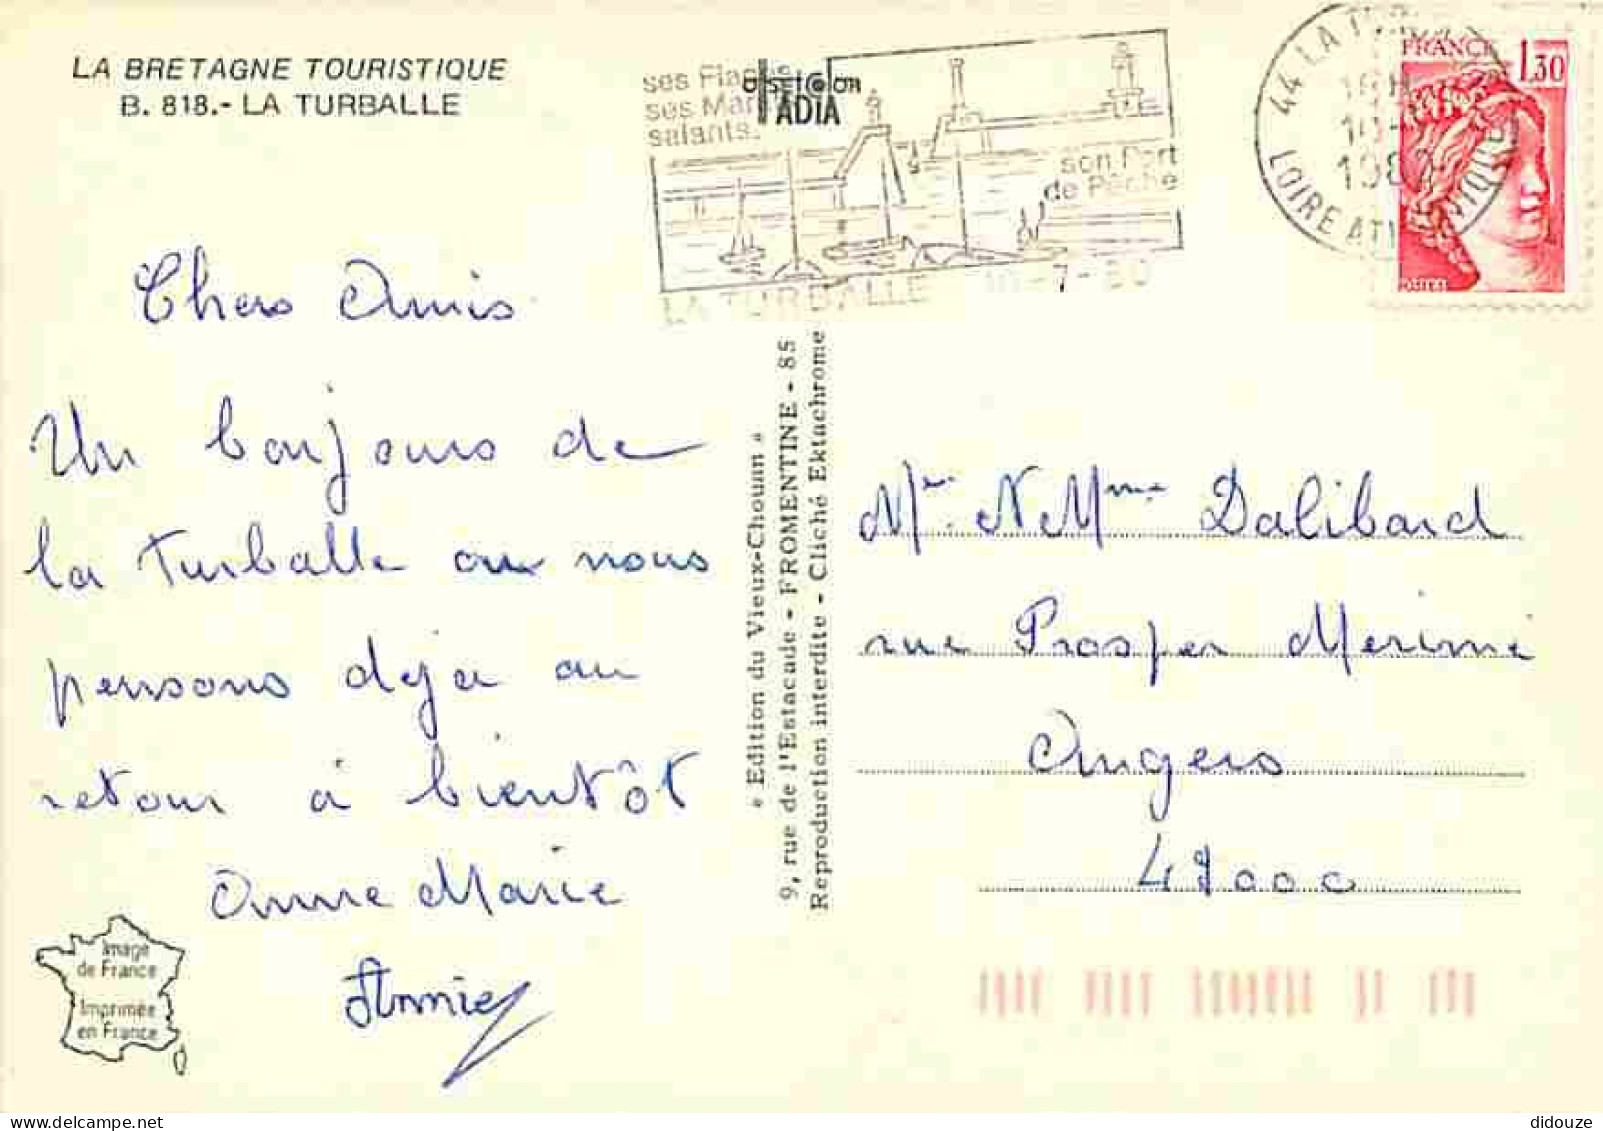 LA BRETAGNE TOURISTIQUE
B. 818.- LA TURBALLE
ses
ses Mar
salants.
ADIA
son Port
de Pêche
LA TURBALLE
44 LA
LOIRE ATL
FRANCE 1,30
Chers Amis
Un bonjour de
la Turballe ou nous
pensons déja au
retour à bientôt
Anne Marie
Annie
Image
de France
Imprimée
en France
« Edition du Vieux-Chouan »
9, rue de l'Estacade - FROMENTINE - 85
Reproduction interdite - Cliché Ektachrome
Mr. N Mme Dalibard
rue Prosper Merimé
Angers
49000
didouze